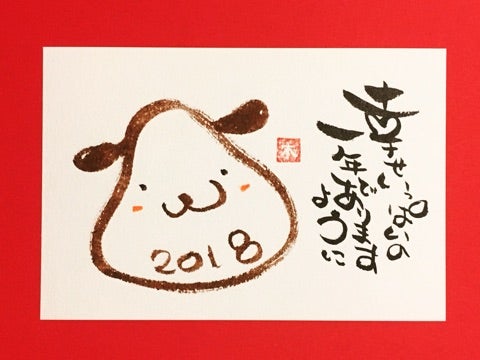 幸せいっぱいの
一年であります
ように
2018